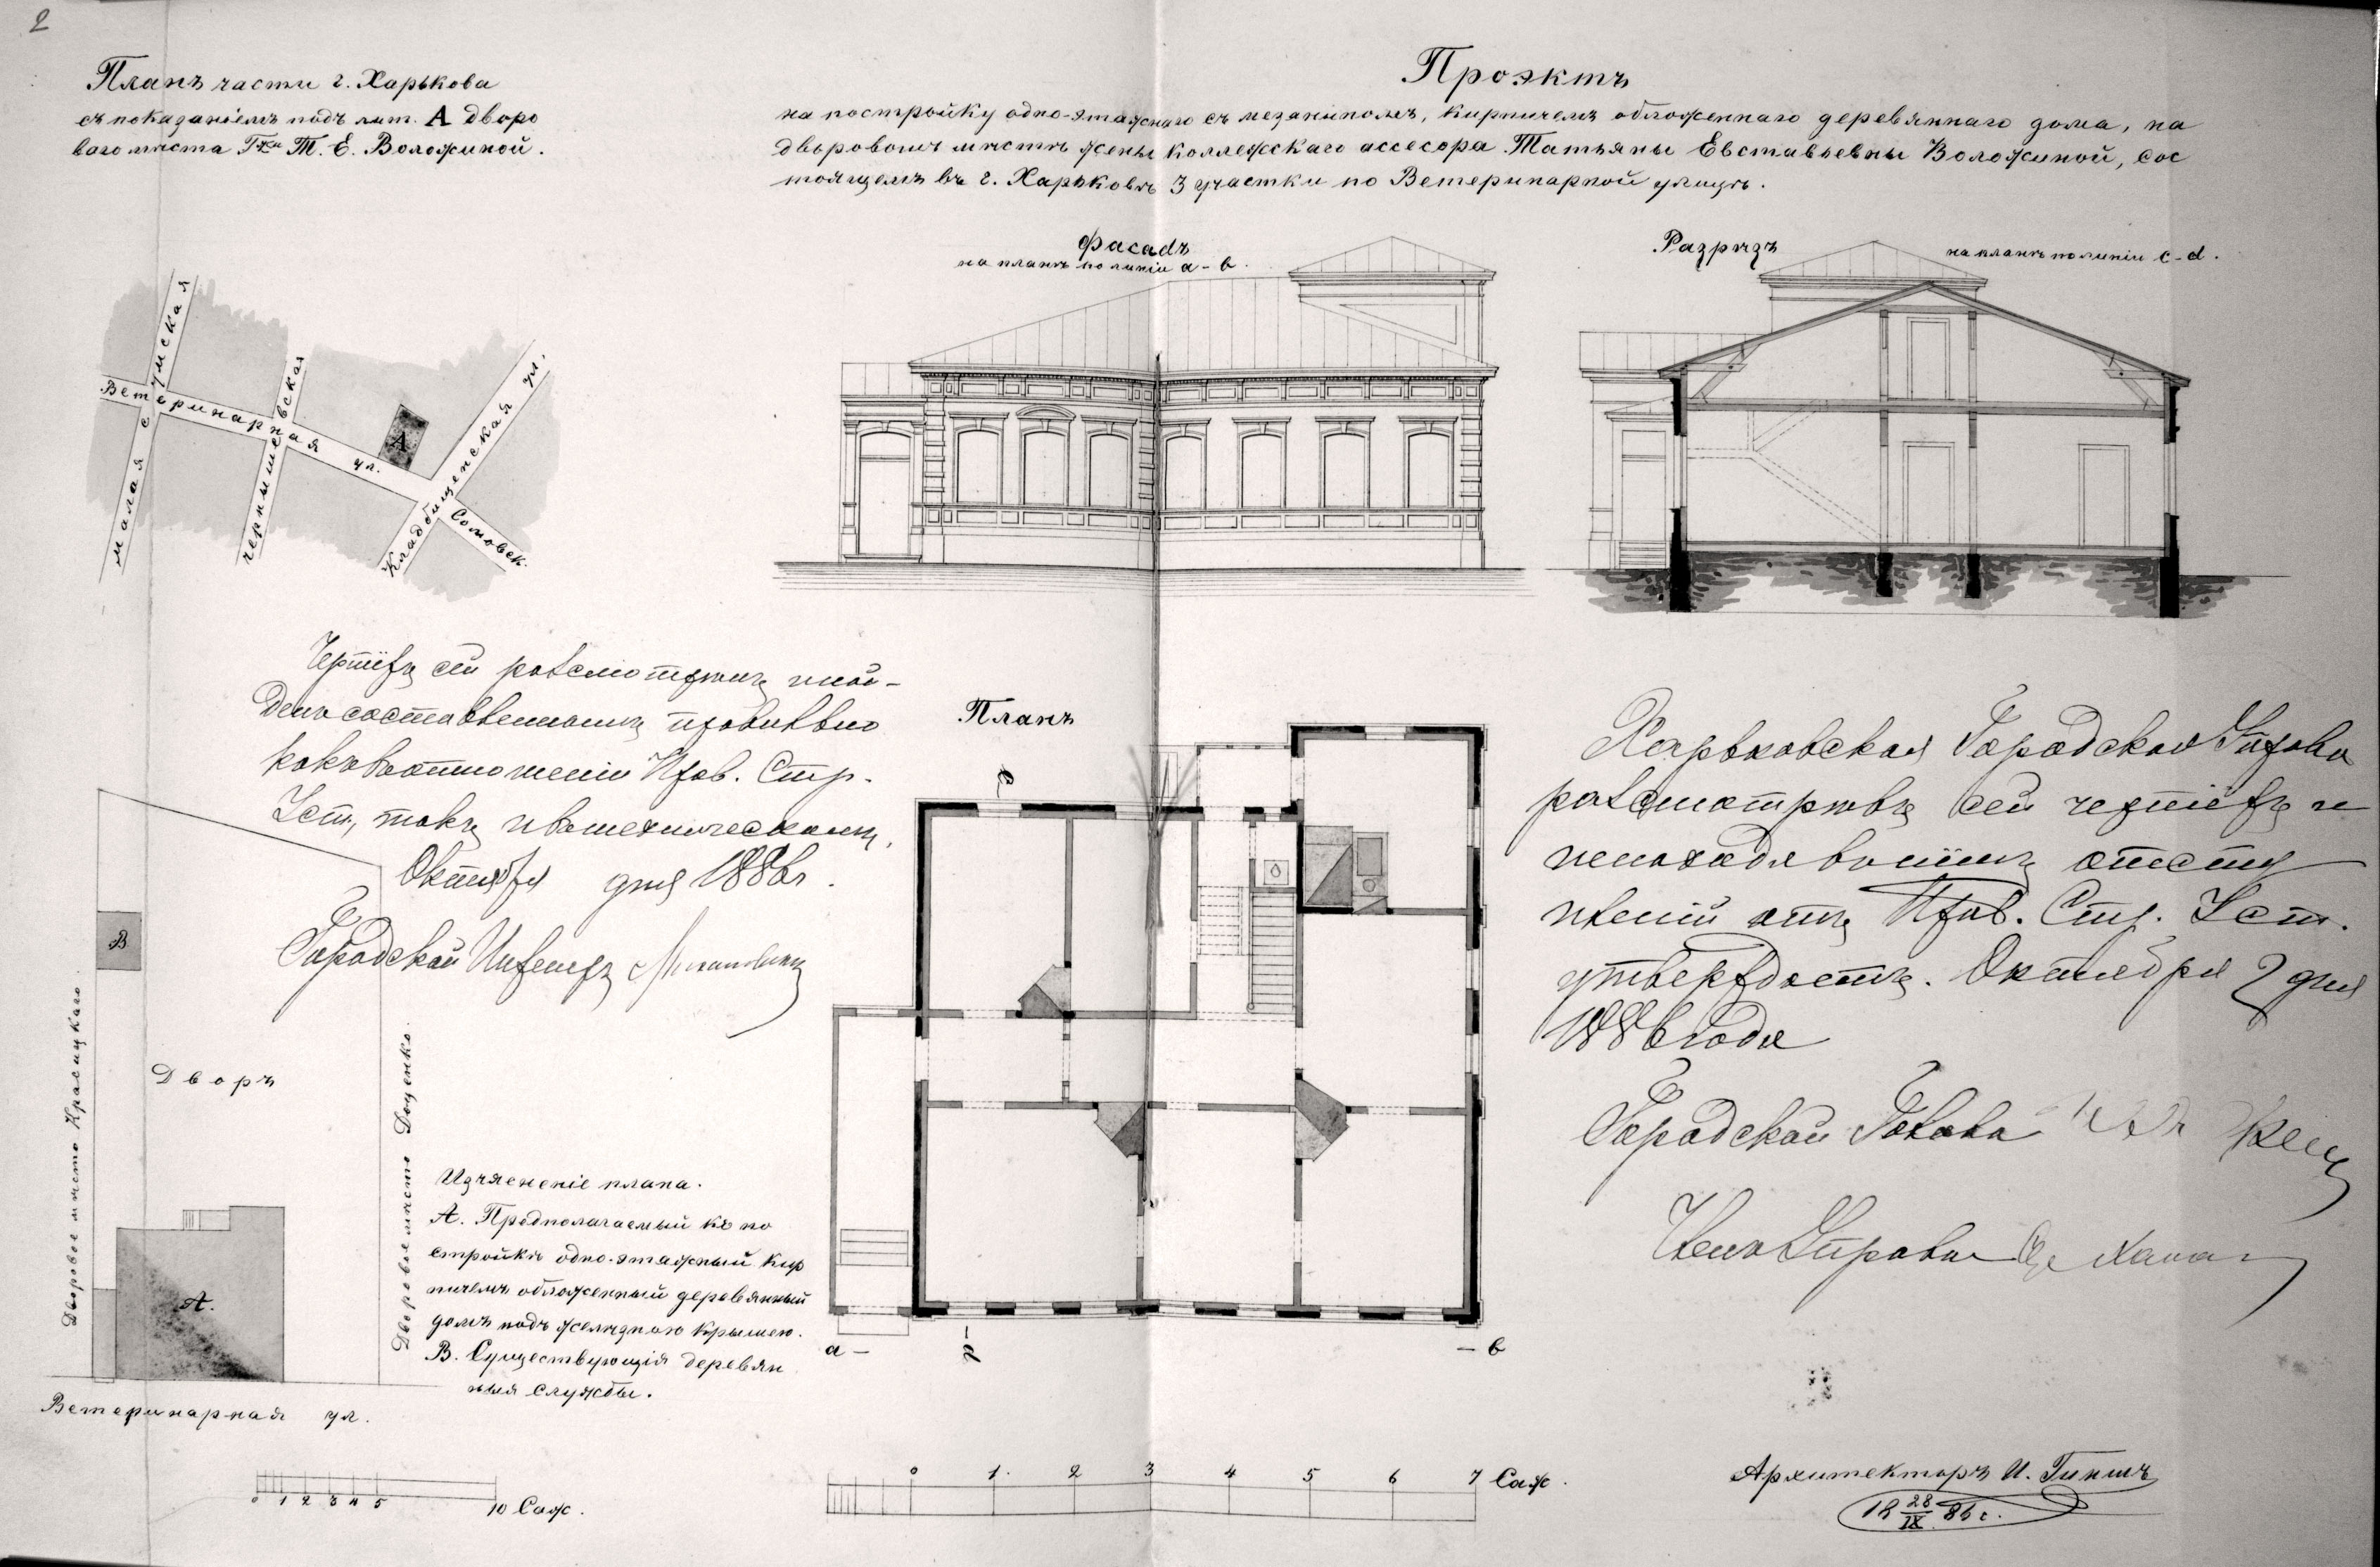 2
Планъ части г. Харькова
съ показаніемъ подъ лит. А дворо
ваго мѣста Г-жи Т. Е. Воложиной.
Проэктъ
на постройку одно-этажнаго съ мезаниномъ, кирпичемъ обложеннаго деревяннаго дома, на
дворовомъ мѣстѣ жены коллежскаго ассесора Татьяны Евставьевны Воложиной, сос
тоящемъ въ г. Харьковѣ 3 участки по Ветеринарной улицѣ.
Фасадъ
на планѣ по линіи а - в.
Разрѣзъ
на планѣ по линіи c - d.
малая сумская
Ветеринарная ул.
чернышевская
А
Кладбищенская ул.
Сомовск.
Чертежъ сей разсмотренъ мной-
составленнымъ правильно
какъ въ отношеніи Прав. Стр.
Уст., такъ и въ техническомъ.
Октября дня 1886 г.
Городской Инженеръ
Планъ
Харьковская Городская Управа
разсмотрѣвъ сей чертежъ и
не находя въ немъ отсту
пленій отъ Прав. Стр. Уст.
утверждаетъ. Октября 2 дня
1886 года
Городской Голова
Членъ Управы
В
Дворъ
Дворовое мѣсто Красицкаго
Дворовое мѣсто Доценко
А.
Ветеринарная ул.
Изъясненіе плана.
А. Предполагаемый къ по
стройкѣ одно-этажный кир
пичемъ обложенный деревянный
домъ подъ желѣзною крышею.
В. Существующія деревян
ныя службы.
а -
- в
0 1 2 3 4 5 10 Саж.
0 1. 2 3 4 5 6 7 Саж.
Архитекторъ И. Гиншъ
18 28/IX 86 г.